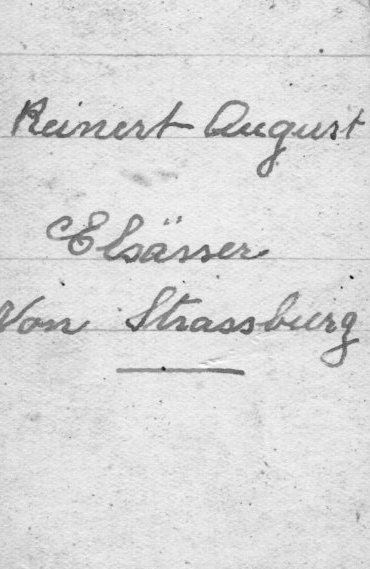 Reinert August
Elsässer
Von Strassburg